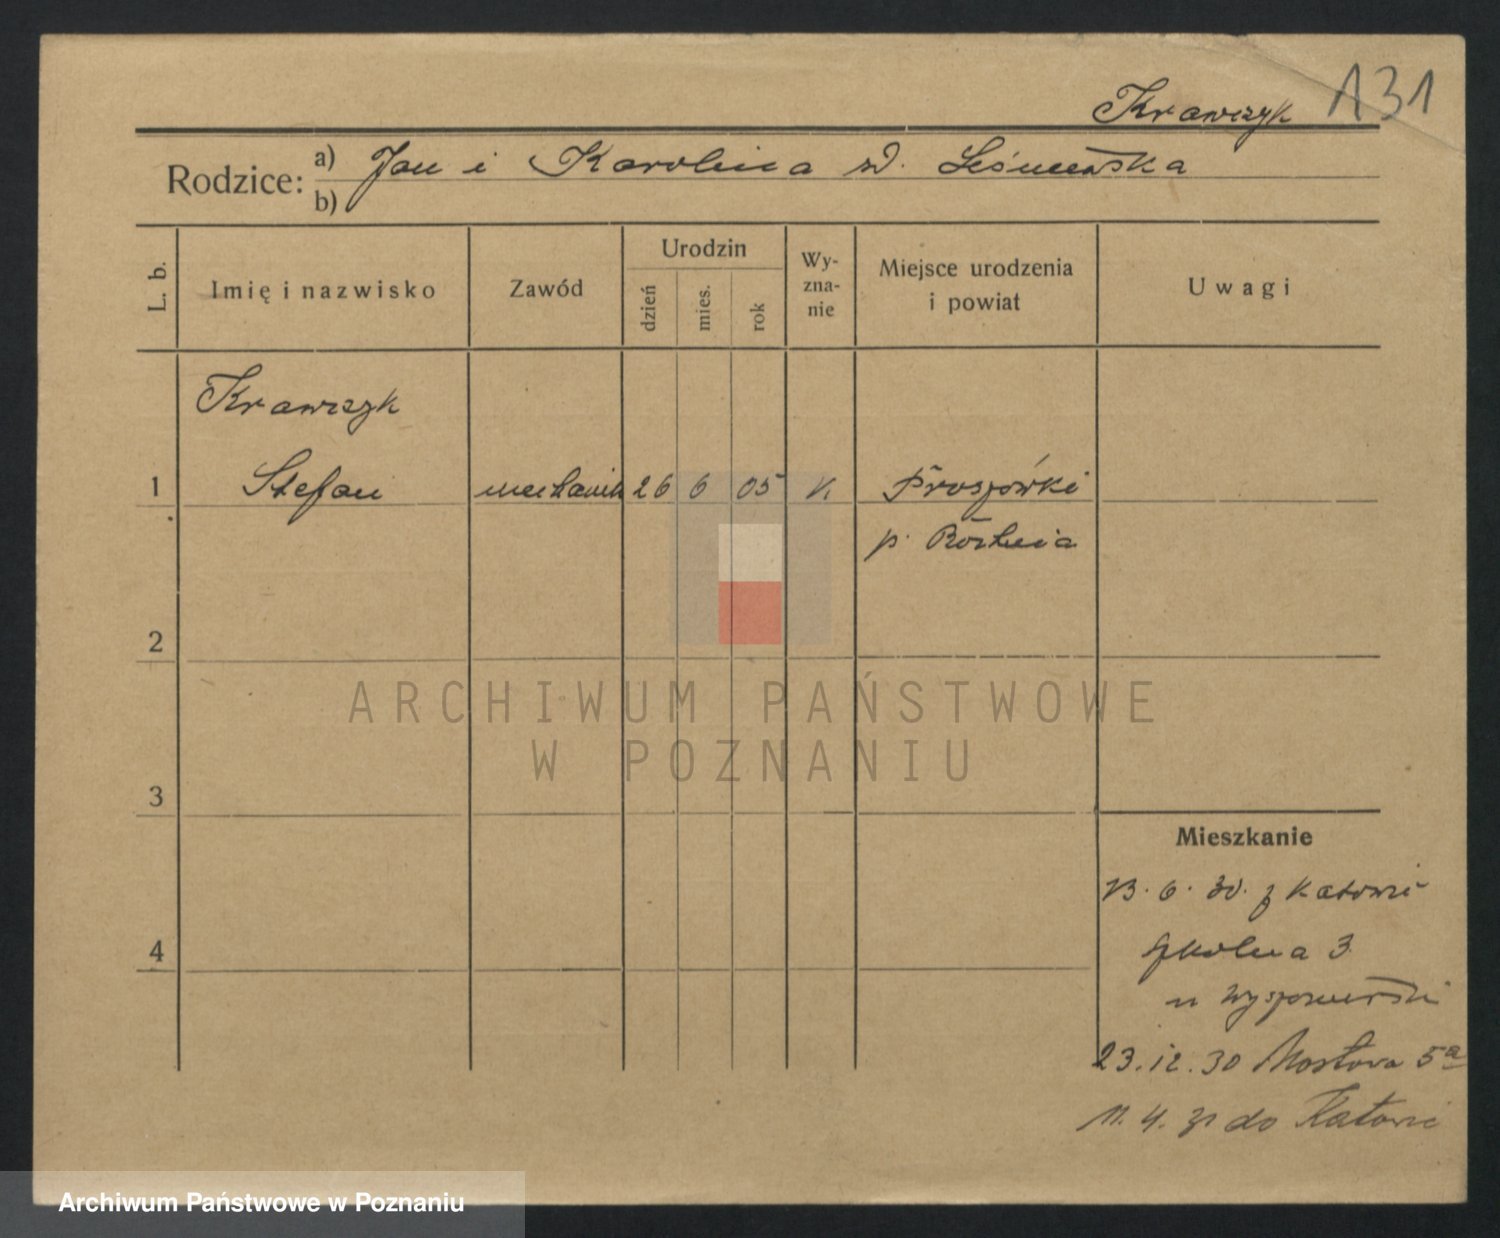 Krawczyk 131
Rodzice: a) Jan i Karolina zd. Leśniewska
b)
L. b.
Imię i nazwisko
Zawód
Urodzin
dzień
mies.
rok
Wy-
zna-
nie
Miejsce urodzenia
i powiat
Uwagi
Krawczyk
1 Stefan mechanik 26 6 05 k. Proszówki
p. Bochnia
2
3
4
Mieszkanie
13. 6. 30. z Katowic
Szkolna 3
u
23. 12. 30 Mostowa 5a
11. 4. 31 do Katowic
ARCHIWUM PAŃSTWOWE
W POZNANIU
Archiwum Państwowe w Poznaniu